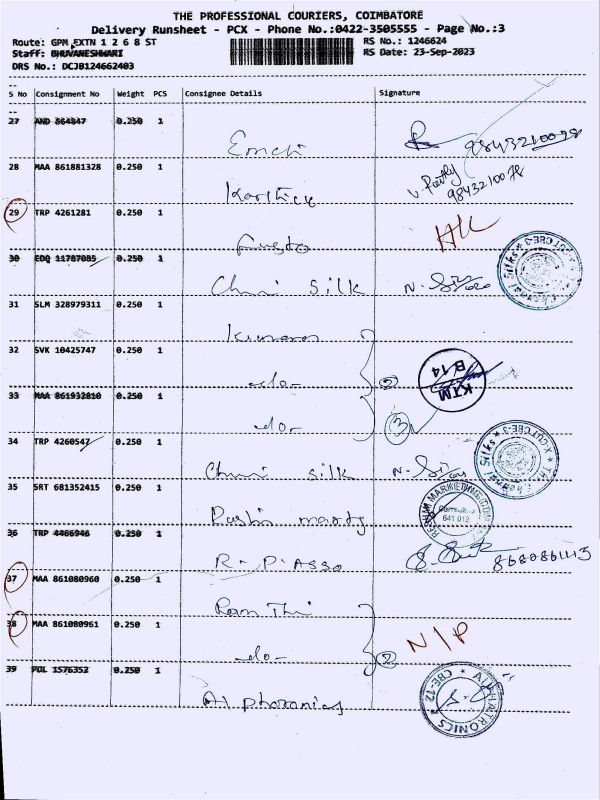 THE PROFESSIONAL COURIERS, COIMBATORE
Delivery Runsheet - PCX - Phone No.:0422-3505555 - Page No.:3
Route: GPM EXTN 1 2 6 8 ST
RS No.: 1246624
Staff: BHUVANESHWARI
RS Date: 23-Sep-2023
DRS No.: DCJ0124662403
S No Consignment No Weight PCS Consignee Details Signature
27 AND 864847 0.250 1 9843210078
28 MAA 861881328 0.250 1 Karthick 9843210078
29 TRP 4261281 0.250 1
30 EDQ 11787085 0.250 1 Chui Silk N.
31 SLM 328979311 0.250 1 Kumaran
32 SVK 10425747 0.250 1 do- 2 KTM B 14
33 MAA 861932810 0.250 1 do- 3
34 TRP 4260547 0.250 1 Chui silk N.
35 SRT 681352415 0.250 1 641 012
36 TRP 4466946 0.250 1 R. P. Asso
37 MAA 861080960 0.250 1
38 MAA 861080961 0.250 1 do- 2 N/P
39 POL 1576352 0.250 1 CBE-12